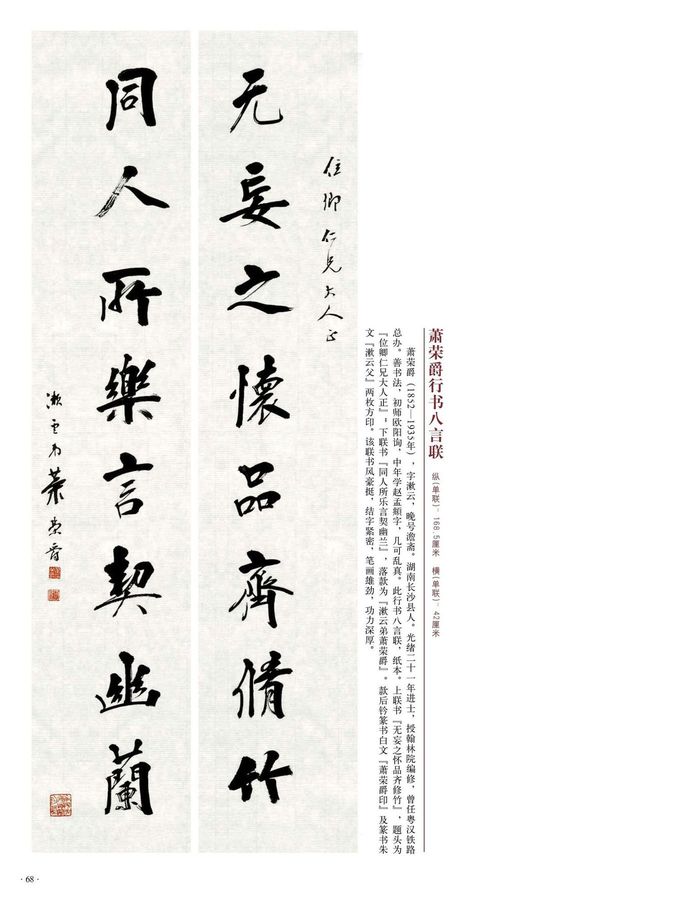 萧荣爵行书八言联
纵(单联):168.5厘米 横(单联):42厘米
萧荣爵(1852—1935年),字漱云,晚号澹斋。湖南长沙县人。光绪二十一年进士,授翰林院编修,曾任粤汉铁路
总办。善书法,初师欧阳询,中年学赵孟頫字,几可乱真。此行书八言联,纸本。上联书『无妄之怀品齐修竹』,题头为
『位卿仁兄大人正』;下联书『同人所乐言契幽兰』,落款为『漱云弟萧荣爵』。款后钤篆书白文『萧荣爵印』及篆书朱
文『漱云父』两枚方印。该联书风豪挺,结字紧密,笔画雄劲,功力深厚。
位卿仁兄大人正
无妄之懷品齊脩竹
同人所樂言契幽蘭
漱云弟蕭榮爵
·68·